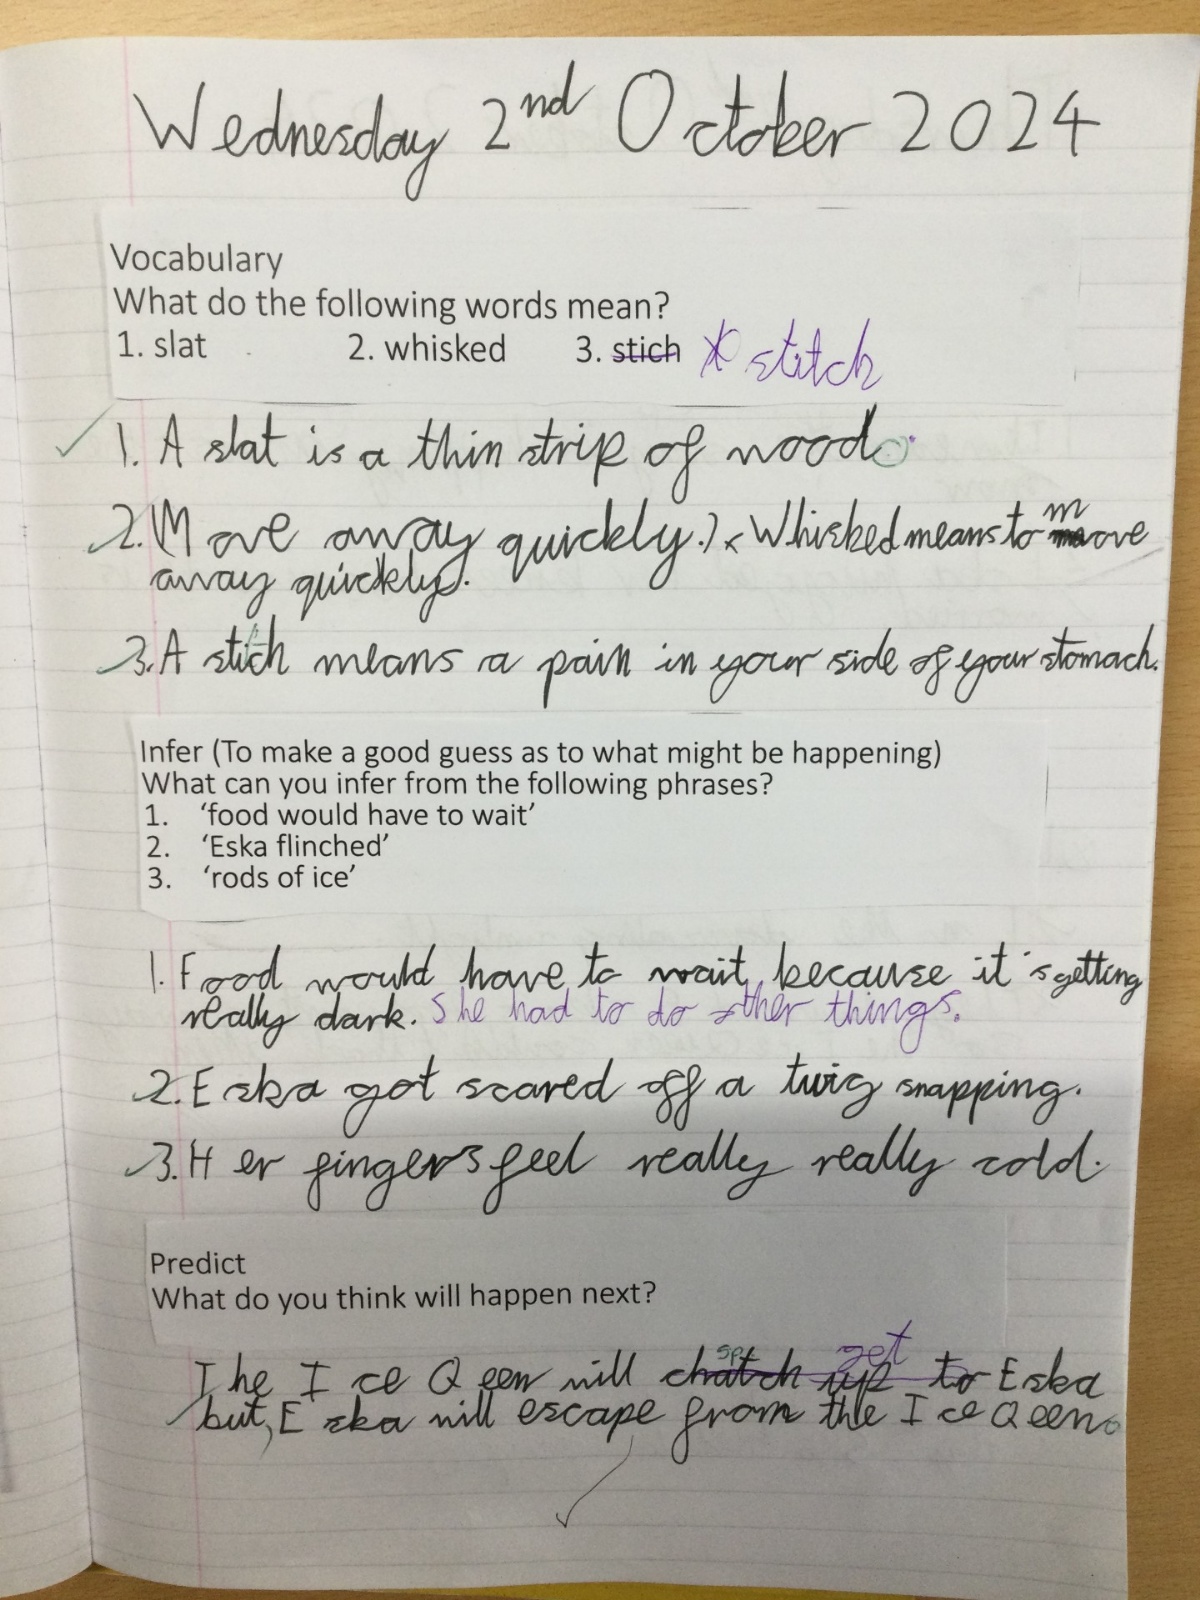 Wednesday 2nd October 2024
Vocabulary
What do the following words mean?
1. slat 2. whisked 3. stich * stitch
1. A slat is a thin strip of wood.
2. (Move away quickly.) x Whisked means to m move
away quickly.
3. A stitch means a pain in your side of your stomach.
Infer (To make a good guess as to what might be happening)
What can you infer from the following phrases?
1. ‘food would have to wait’
2. ‘Eska flinched’
3. ‘rods of ice’
1. Food would have to wait, because it's getting
really dark. She had to do other things.
2. Eska got scared off a twig snapping.
3. Her fingers feel really really cold.
Predict
What do you think will happen next?
sp get
The Ice Qeen will chatch up to Eska
but, Eska will escape from the Ice Qeen.